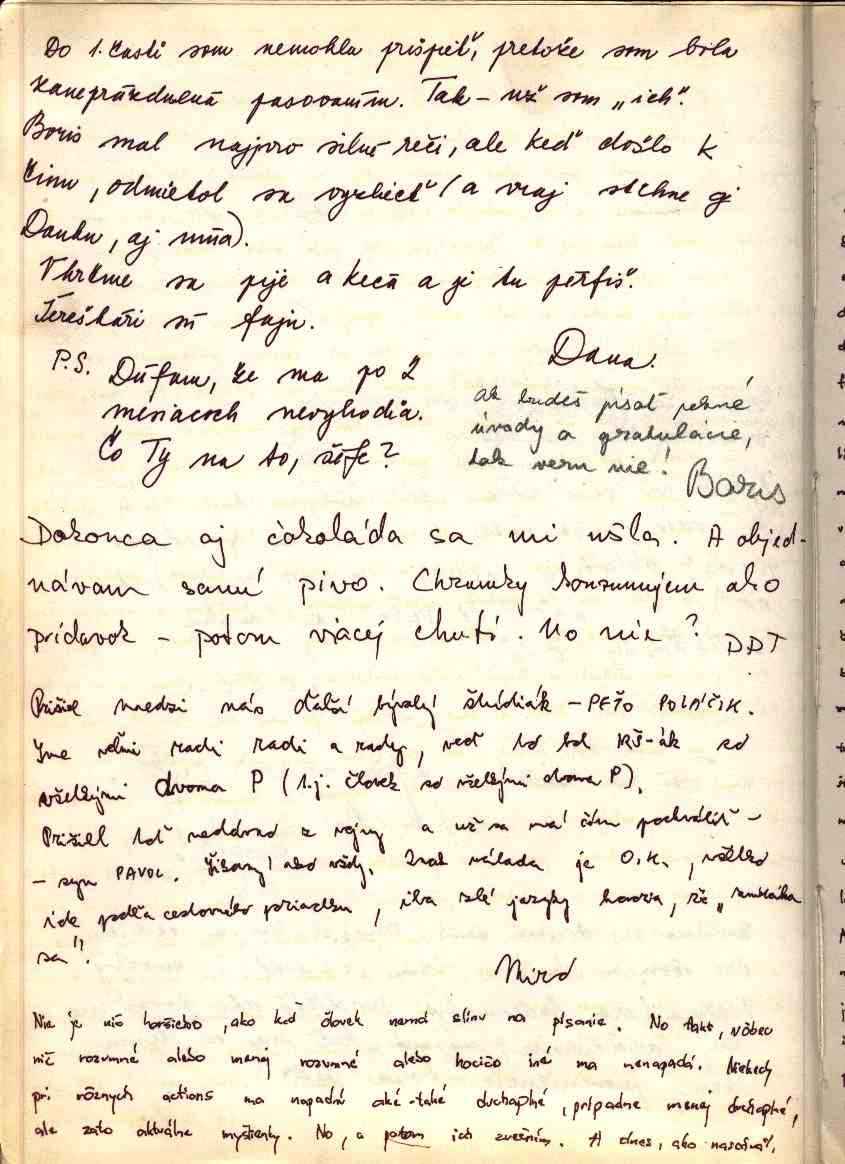 Do 1. časti som nemohla prispieť, pretože som bola
zaneprázdnená pasovaním. Tak – už som „ich“.
Boris mal najprv silné reči, ale keď došlo k
činu, odmietol sa vyzliecť (a vraj stihne aj
Danku, aj mňa).
Vhrkme sa pije a kecá a je tu
Tereškári sú fajn.
P.S. Dúfam, že ma po 2
mesiacoch nevyhodia.
Čo Ty na to, šéfe?
Dana.
ak budeš písať pekné
úvody a gratulácie,
tak veru nie!
Boris
Dokonca aj čokoláda sa mi ušla. A objed-
návam samé pivo. Chrumky konzumujem ako
prídavok – potom viacej chutí. No nie?
DDT
Prišiel medzi nás ďalší bývalý štúdiák – PEŤO POLÁČIK.
Sme veľmi radi radi a rady, veď to bol KŠ-ák so
všetkými dvoma P (t.j. človek so všetkými dvoma P).
Prišiel totiž nedávno z vojny a už sa má čím pochváliť –
– syn PAVOL. ako vždy. nálada je O.K., všetko
ide podľa cestovného poriadku, iba zlé jazyky hovoria, že
sa“.
Miro
Nie je nič horšieho, ako keď človek nemá slinu na písanie. No fakt, vôbec
nič rozumné alebo menej rozumné alebo hocičo iné ma nenapadá. Niekedy
pri rôznych actions ma napadnú aké-také duchaplné, prípadne menej duchaplné,
ale zato aktuálne myšlienky. No, a potom ich zverším. A dnes, ako naschvál,